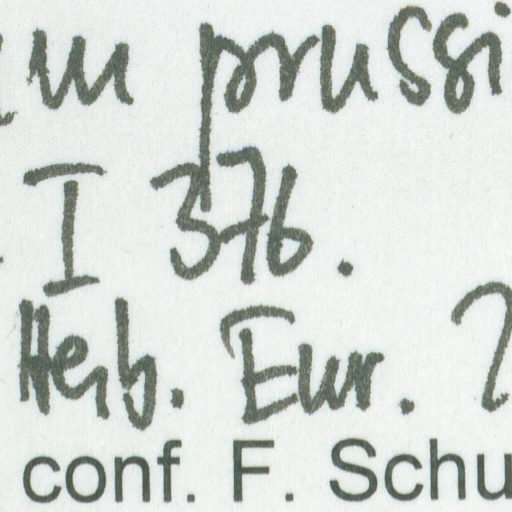 um prussi
I 376.
Herb. Eur.
conf. F. Schu